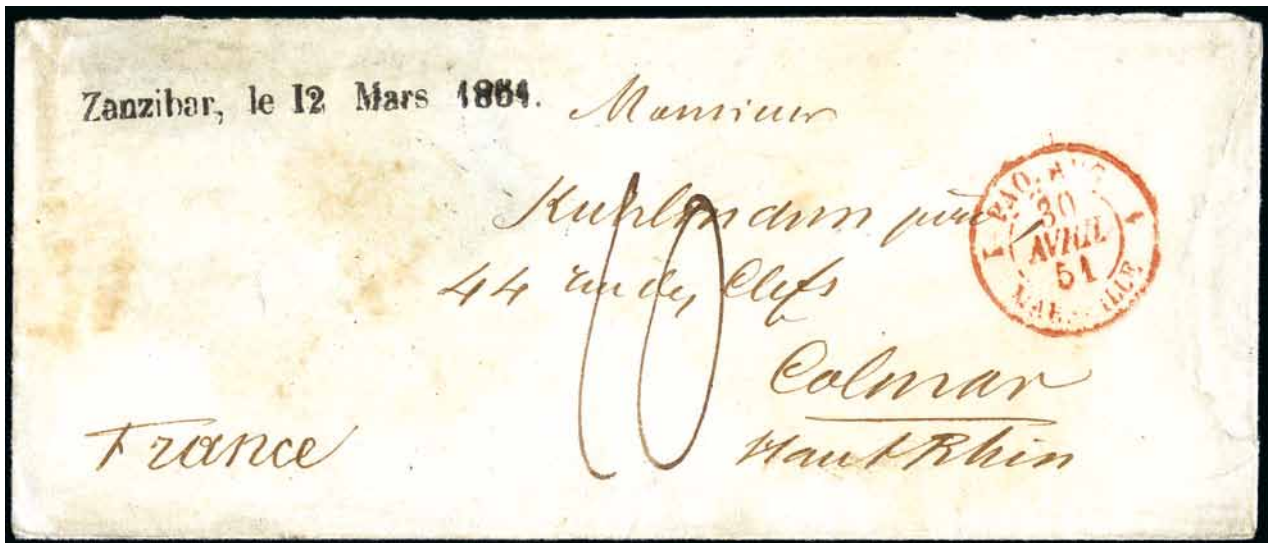 Zanzibar, le 12 Mars 1851.
Monsieur
Kuhlmann père,
44 rue des Clefs
Colmar
Haut Rhin
France
10
PAQ.
30
AVRIL
51
MARSEILLE